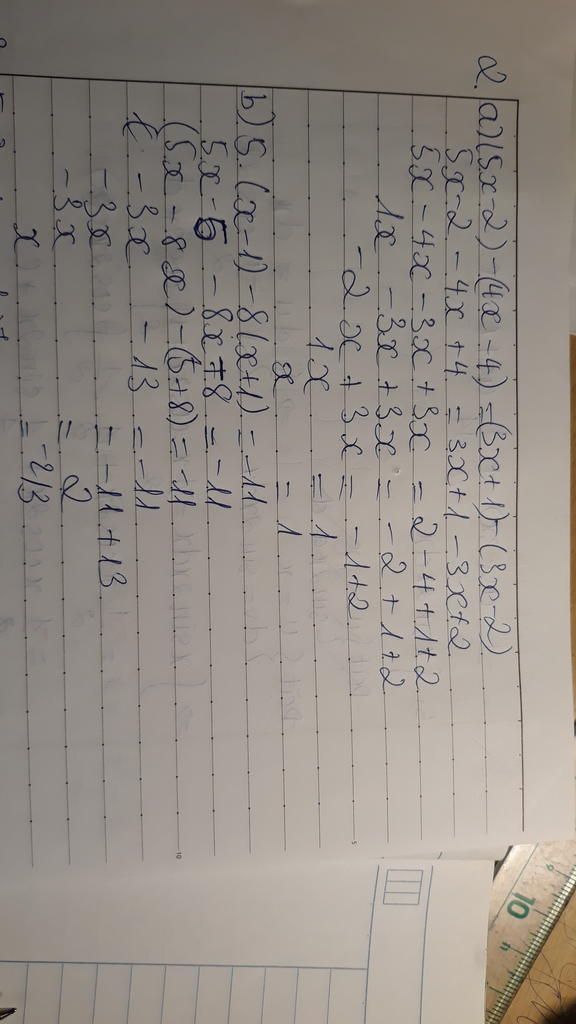 2. a) (5x-2) - (4x-4) = (3x+1) - (3x-2)
5x-2 - 4x+4 = 3x+1 - 3x+2
5x - 4x - 3x + 3x = 2-4+1+2
1x - 3x + 3x = -2+1+2
-2x + 3x = -1+2
1x = 1
x = 1
b) 5.(x-1) - 8(x+1) = -11
5x-5 - 8x+8 = -11
(5x - 8x) - (5+8) = -11
-3x - 13 = -11
-3x = -11+13
-3x = 2
x = -2/3
10